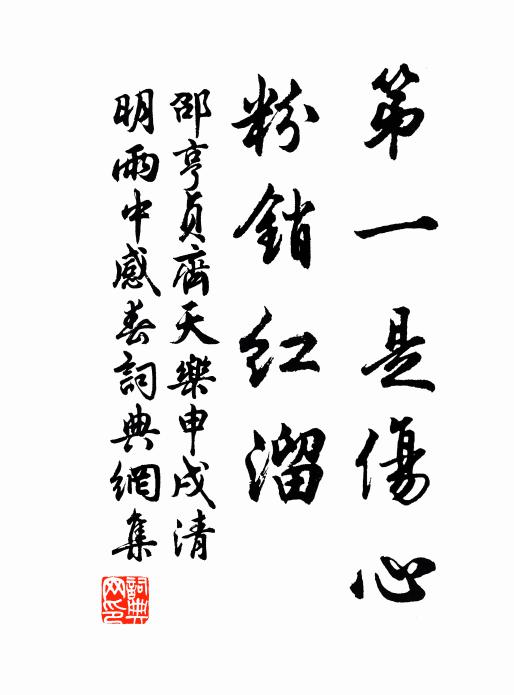 第一是傷心
粉銷紅溜
邵亨貞齊天樂申戌清
明雨中感春詞典網集
詞典
网印